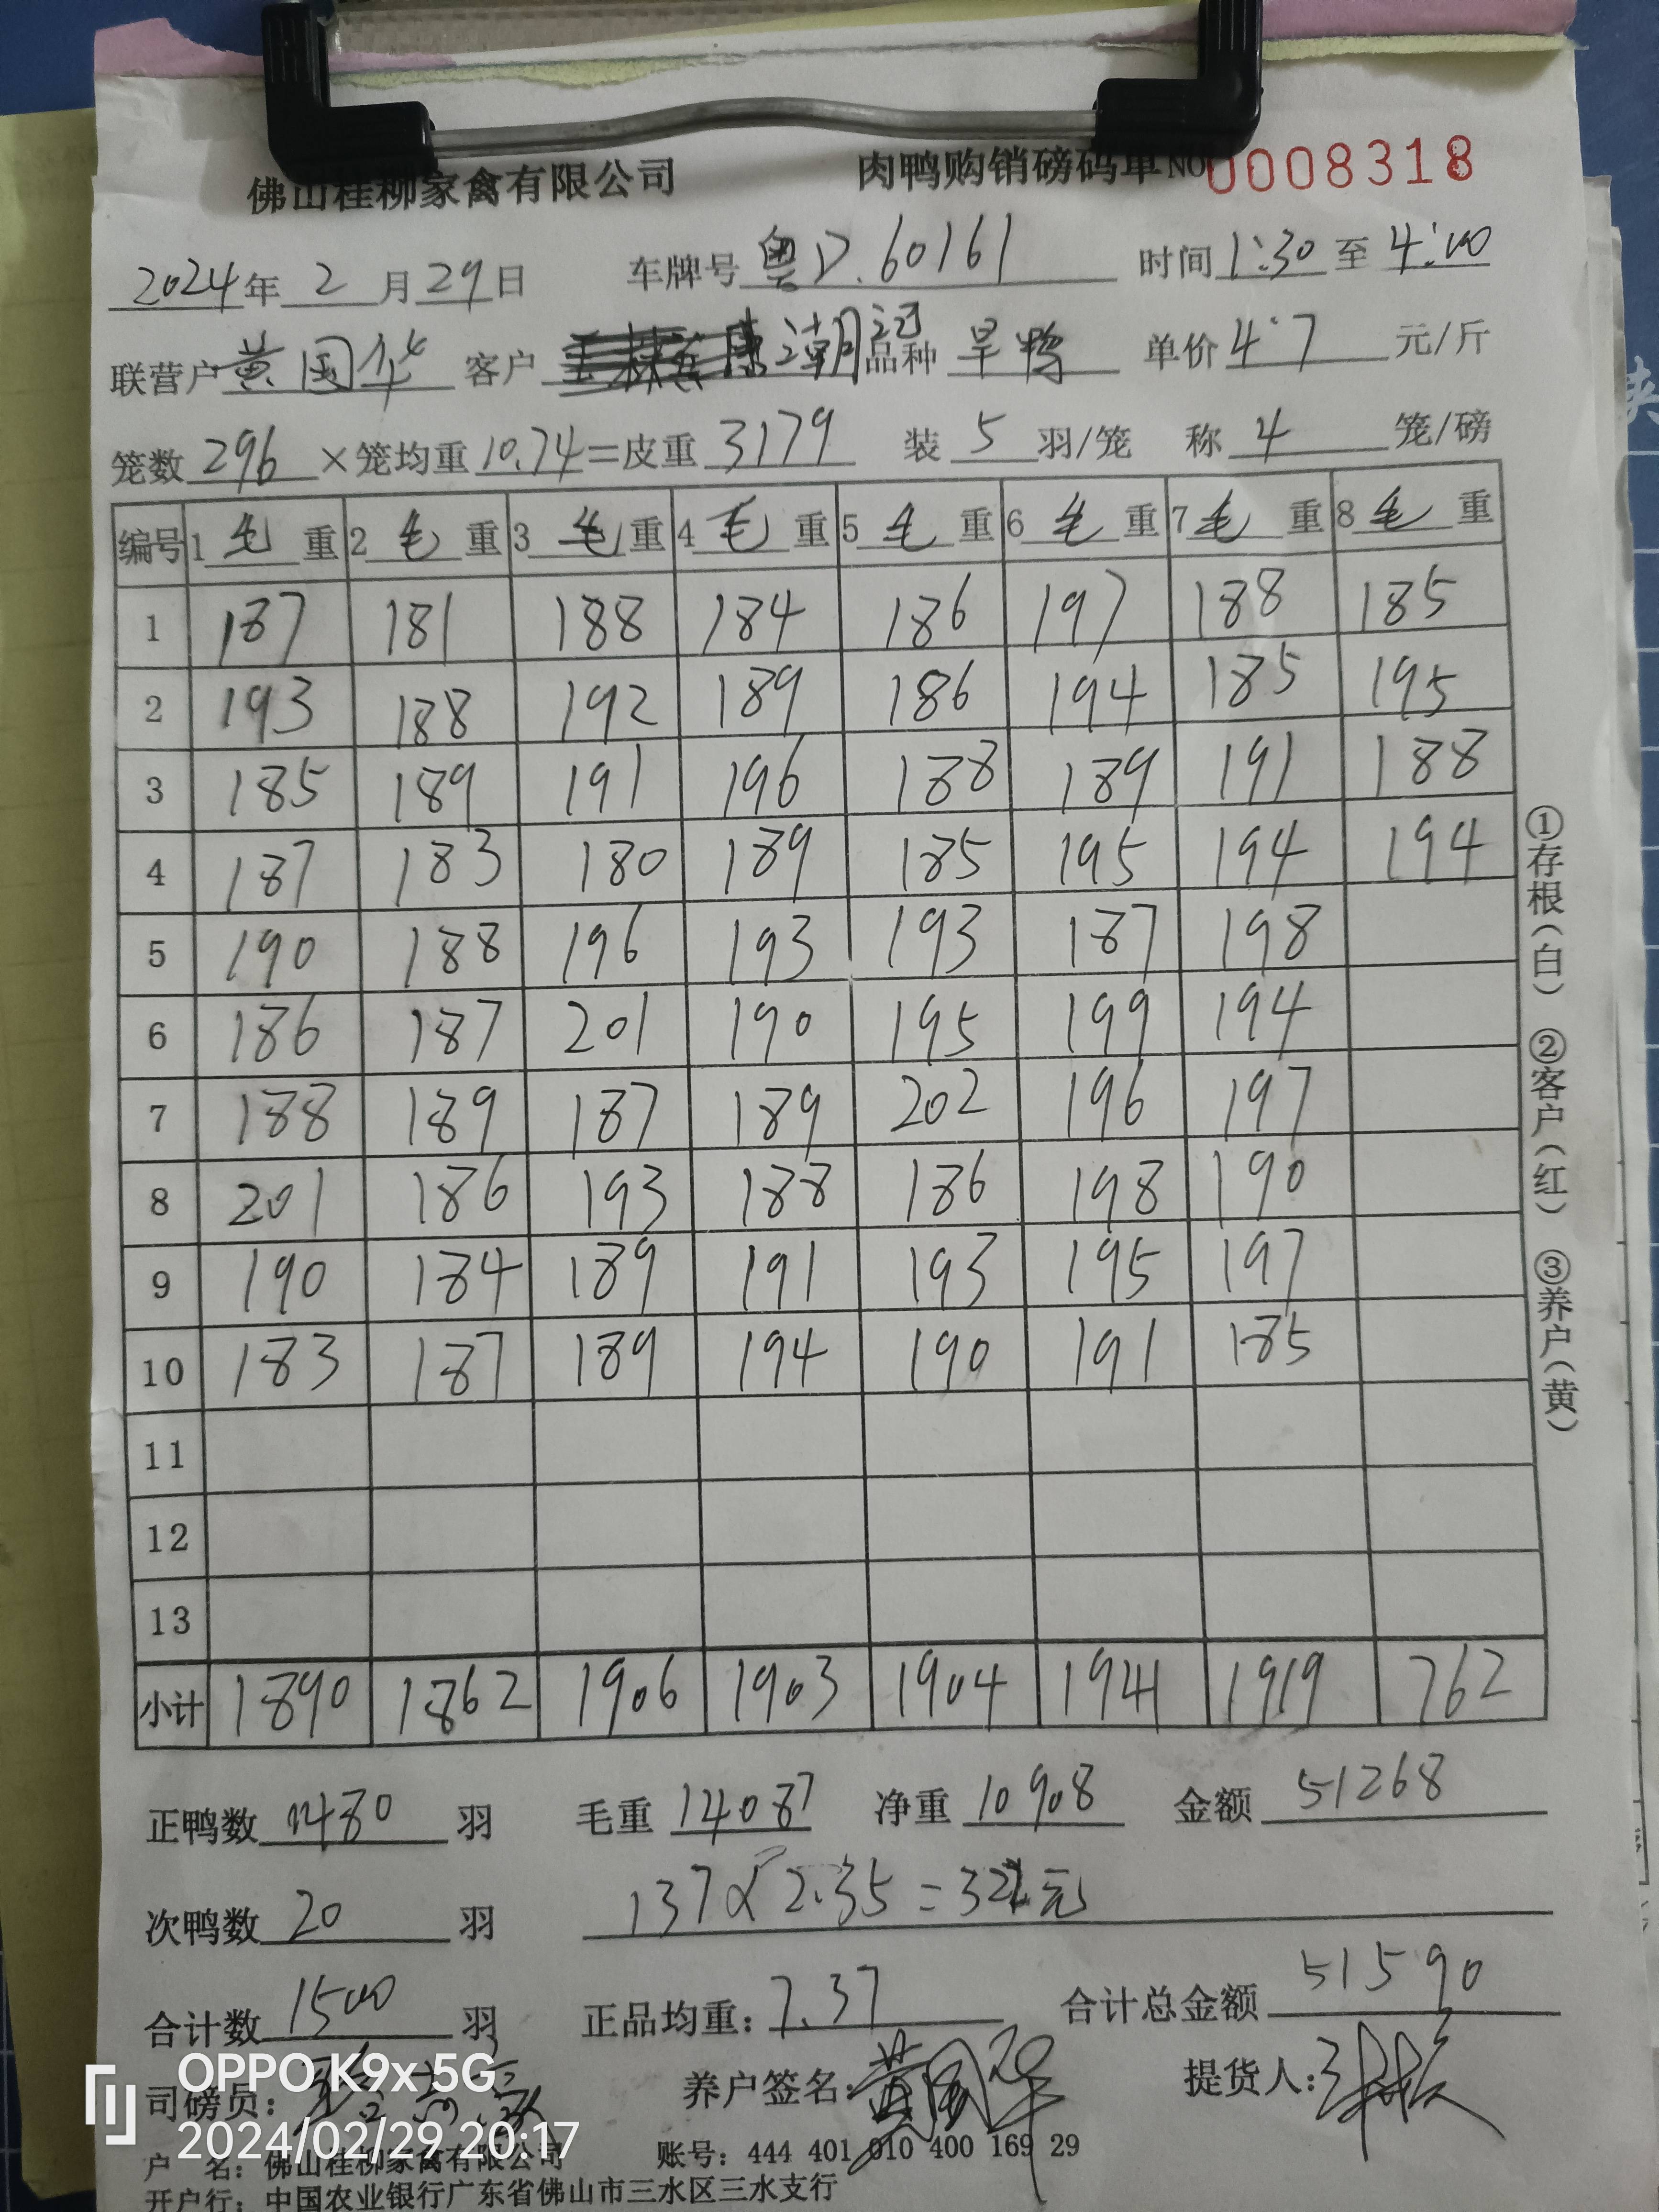 佛山桂柳家禽有限公司 肉鸭购销磅码单NO 0008318
2024年2月29日 车牌号粤D.60161 时间1:30至4:00
联营户黄国华 客户 潮记 品种旱鸭 单价4.7元/斤
笼数296×笼均重10.74=皮重3179 装5羽/笼 称4笼/磅
编号 1毛重 2毛重 3毛重 4毛重 5毛重 6毛重 7毛重 8毛重
1 187 181 188 184 186 197 188 185
2 193 188 192 189 186 194 185 195
3 185 189 191 196 188 189 191 188
4 187 183 180 189 185 195 194 194
5 190 188 196 193 193 187 198
6 186 187 201 190 195 199 194
7 188 189 187 189 202 196 197
8 201 186 193 188 186 198 190
9 190 184 189 191 193 195 197
10 183 187 189 194 190 191 185
11
12
13
小计 1890 1862 1906 1903 1904 1941 1919 762
正鸭数1480羽 毛重14087 净重10908 金额51268
次鸭数20羽 137×2.35=322元
合计数1500羽 正品均重:7.37 合计总金额51590
司磅员: 养户签名:黄国华 提货人:
户 名:佛山桂柳家禽有限公司 账号:444 401 010 400 169 29
开户行:中国农业银行广东省佛山市三水区三水支行
①存根(白) ②客户(红) ③养户(黄)
OPPO K9x 5G
2024/02/29 20:17